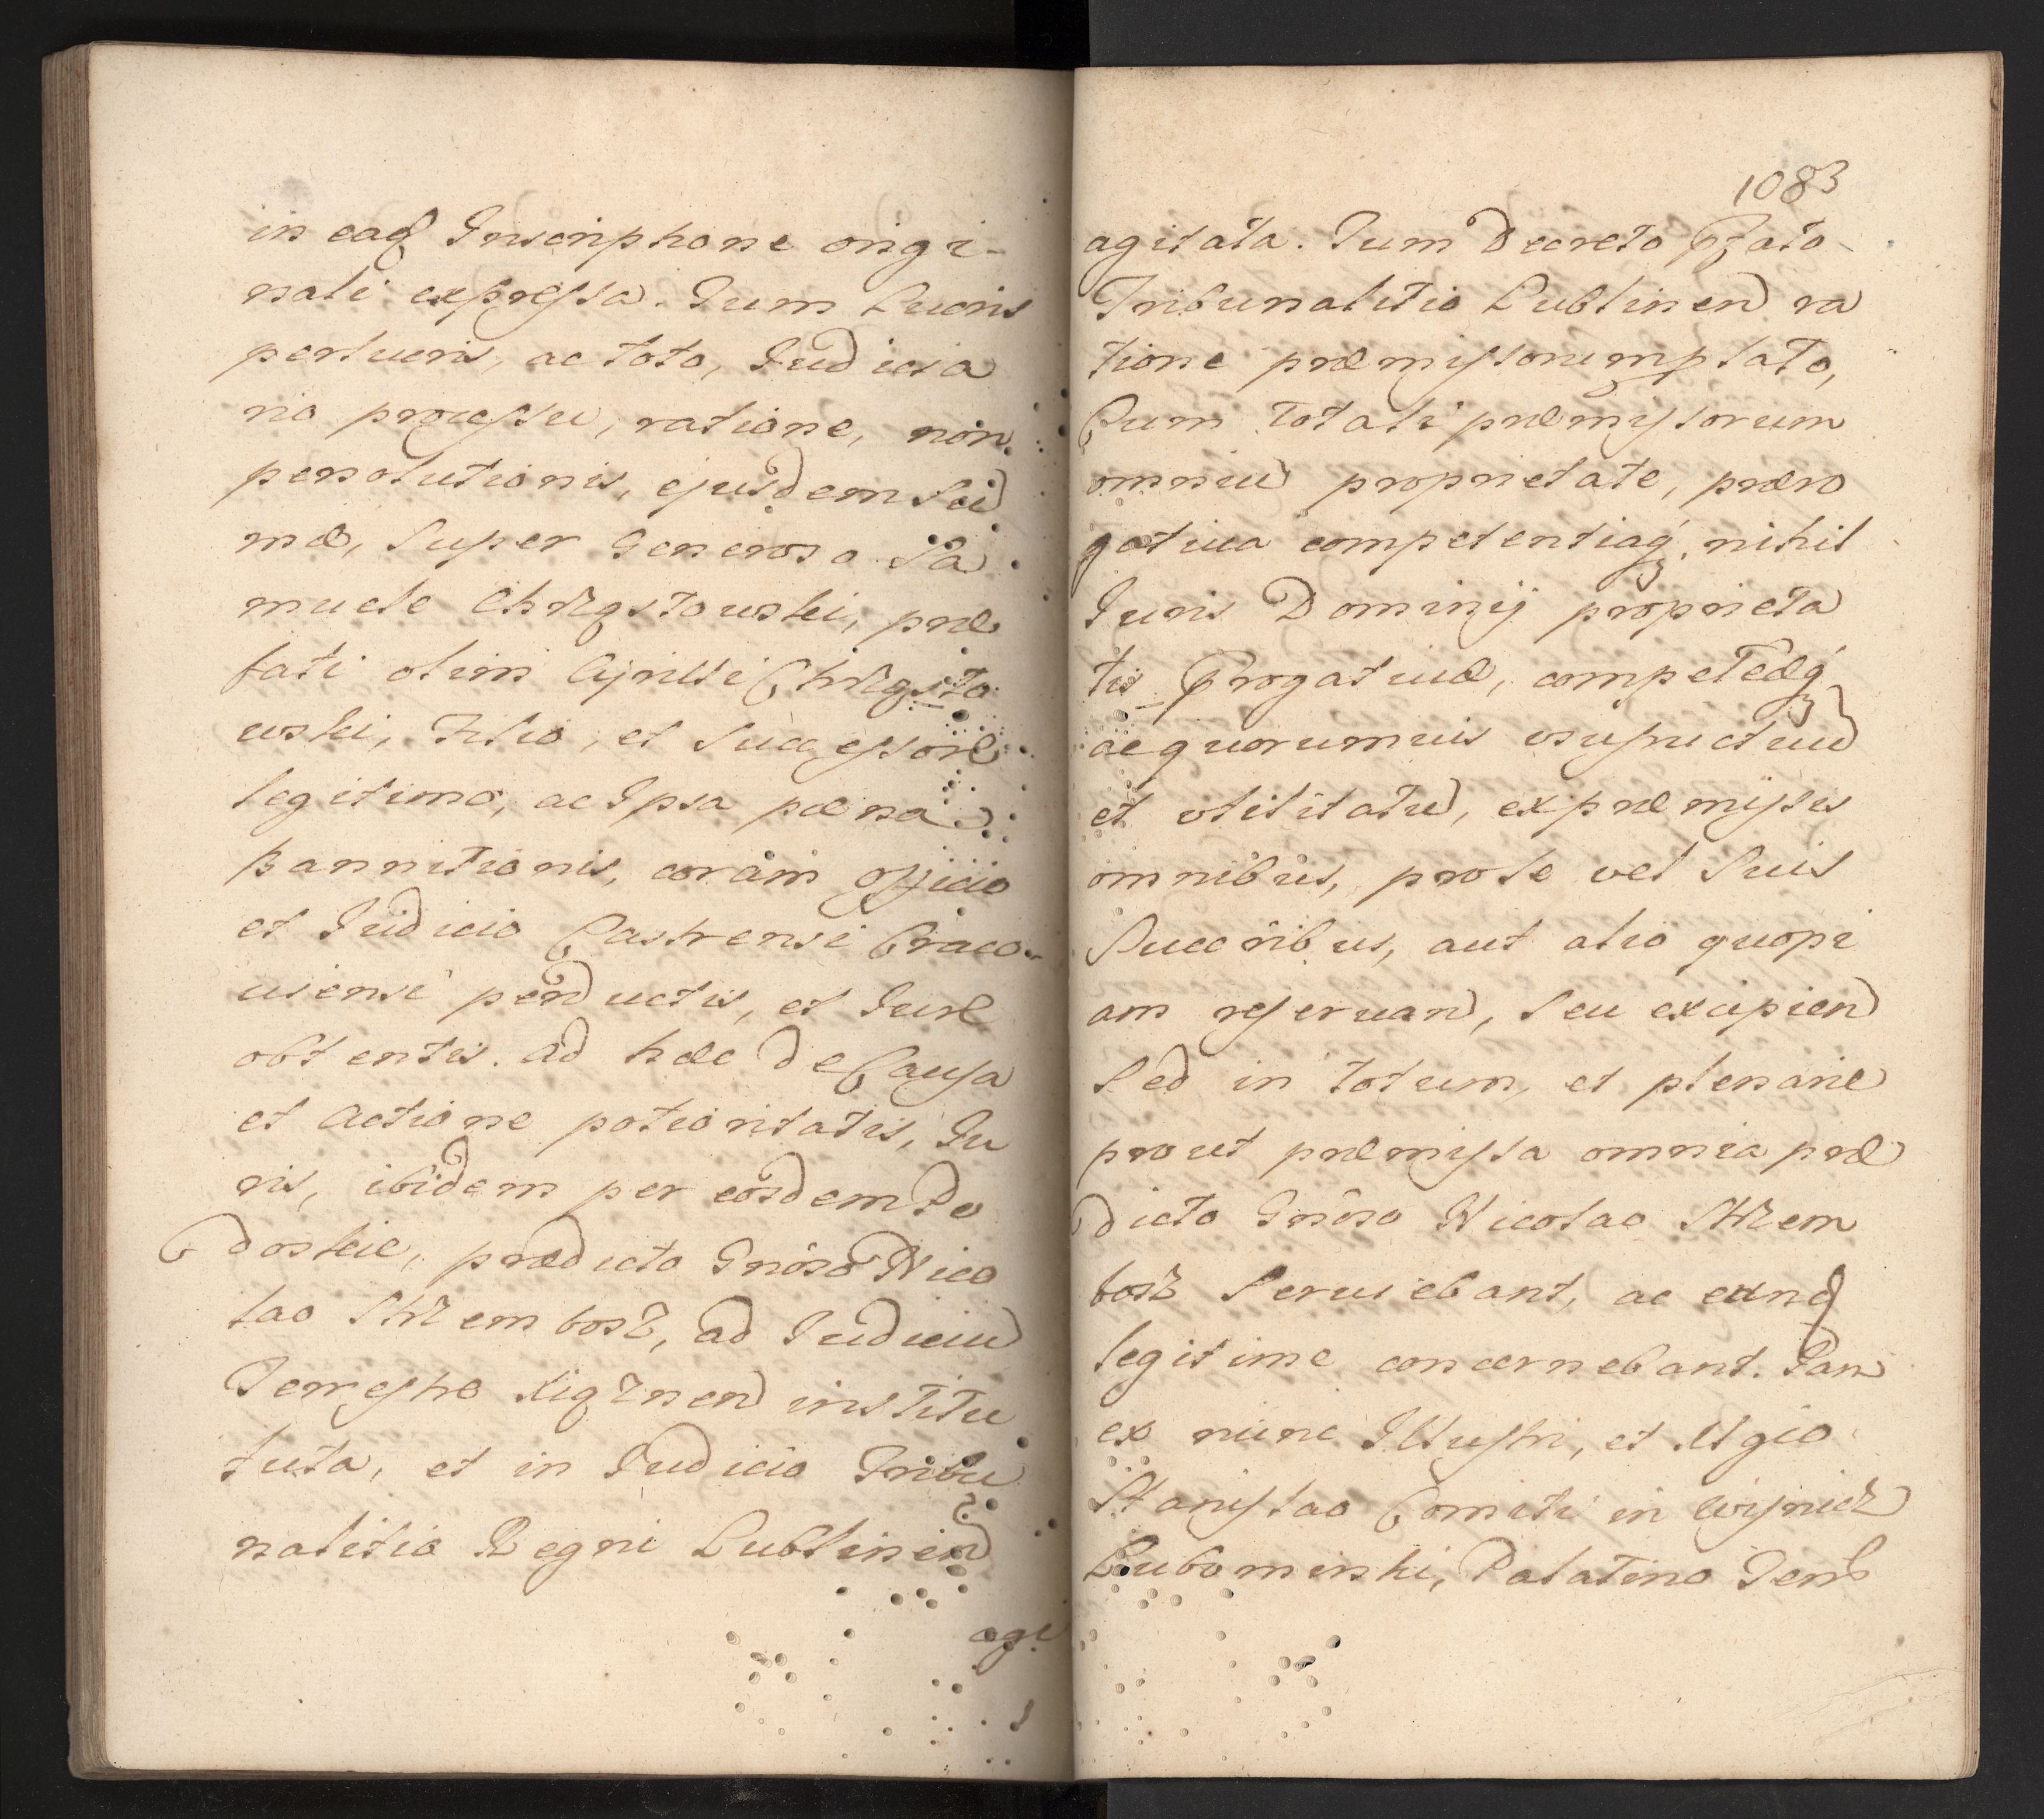 in eadẽ Inscriptione origi-
nali expressa. Tum Lucris
perlucris, ac toto, Judicia
rio processu, ratione, non
persolutionis, ejusdem Sum̃
mæ, Super Generoso Sa
muele Chrząstowski, præ
fati olim Cyrilli Chrząsto
wski, Filio, et Successore
legitimo, ac Ipsa pœna
Bannitionis, coram officio
et Judicio Castrensi Craco-
viensi perductis, et Jure
obtentis. Ad hæc de Causa
et Actione potioritatis, Ju
ris, ibidem per eosdem Po
doskie, prædicto Gnôso Nico
lao Strzembosz, ad Judiciũ
Terrestre Xiąznen̄ institu
tuta, et in Judicio Tribu
nalitio Regni Lublinen̄
agi
1083
agitata. Tum Decreto pfato
Tribunalitio Lublinen̄ ra
tione præmissorum lato,
Cum totali præmissorum
omniũ proprietate, præro
gativa competentiaq́, nihil
Juris Dominij proprieta
tis progativæ, competeæq́
ac quorumvis usufructuũ
et utilitatũ, ex præmissis
omnibus, pro se vel Suis
Succribus, aut alio quopi
am reservan̄, Seu excipien̄
Sed in totum, et plenarie
prout præmissa omnia præ
dicto Gnôso Nicolao Strzem
bosz Serviebant, ac eundẽ
legitime concernebant. Jam
ex nunc Illustri, et Mgco
Stanislao Comiti in Wisnicz
Lubomirski, Palatino Terr̃